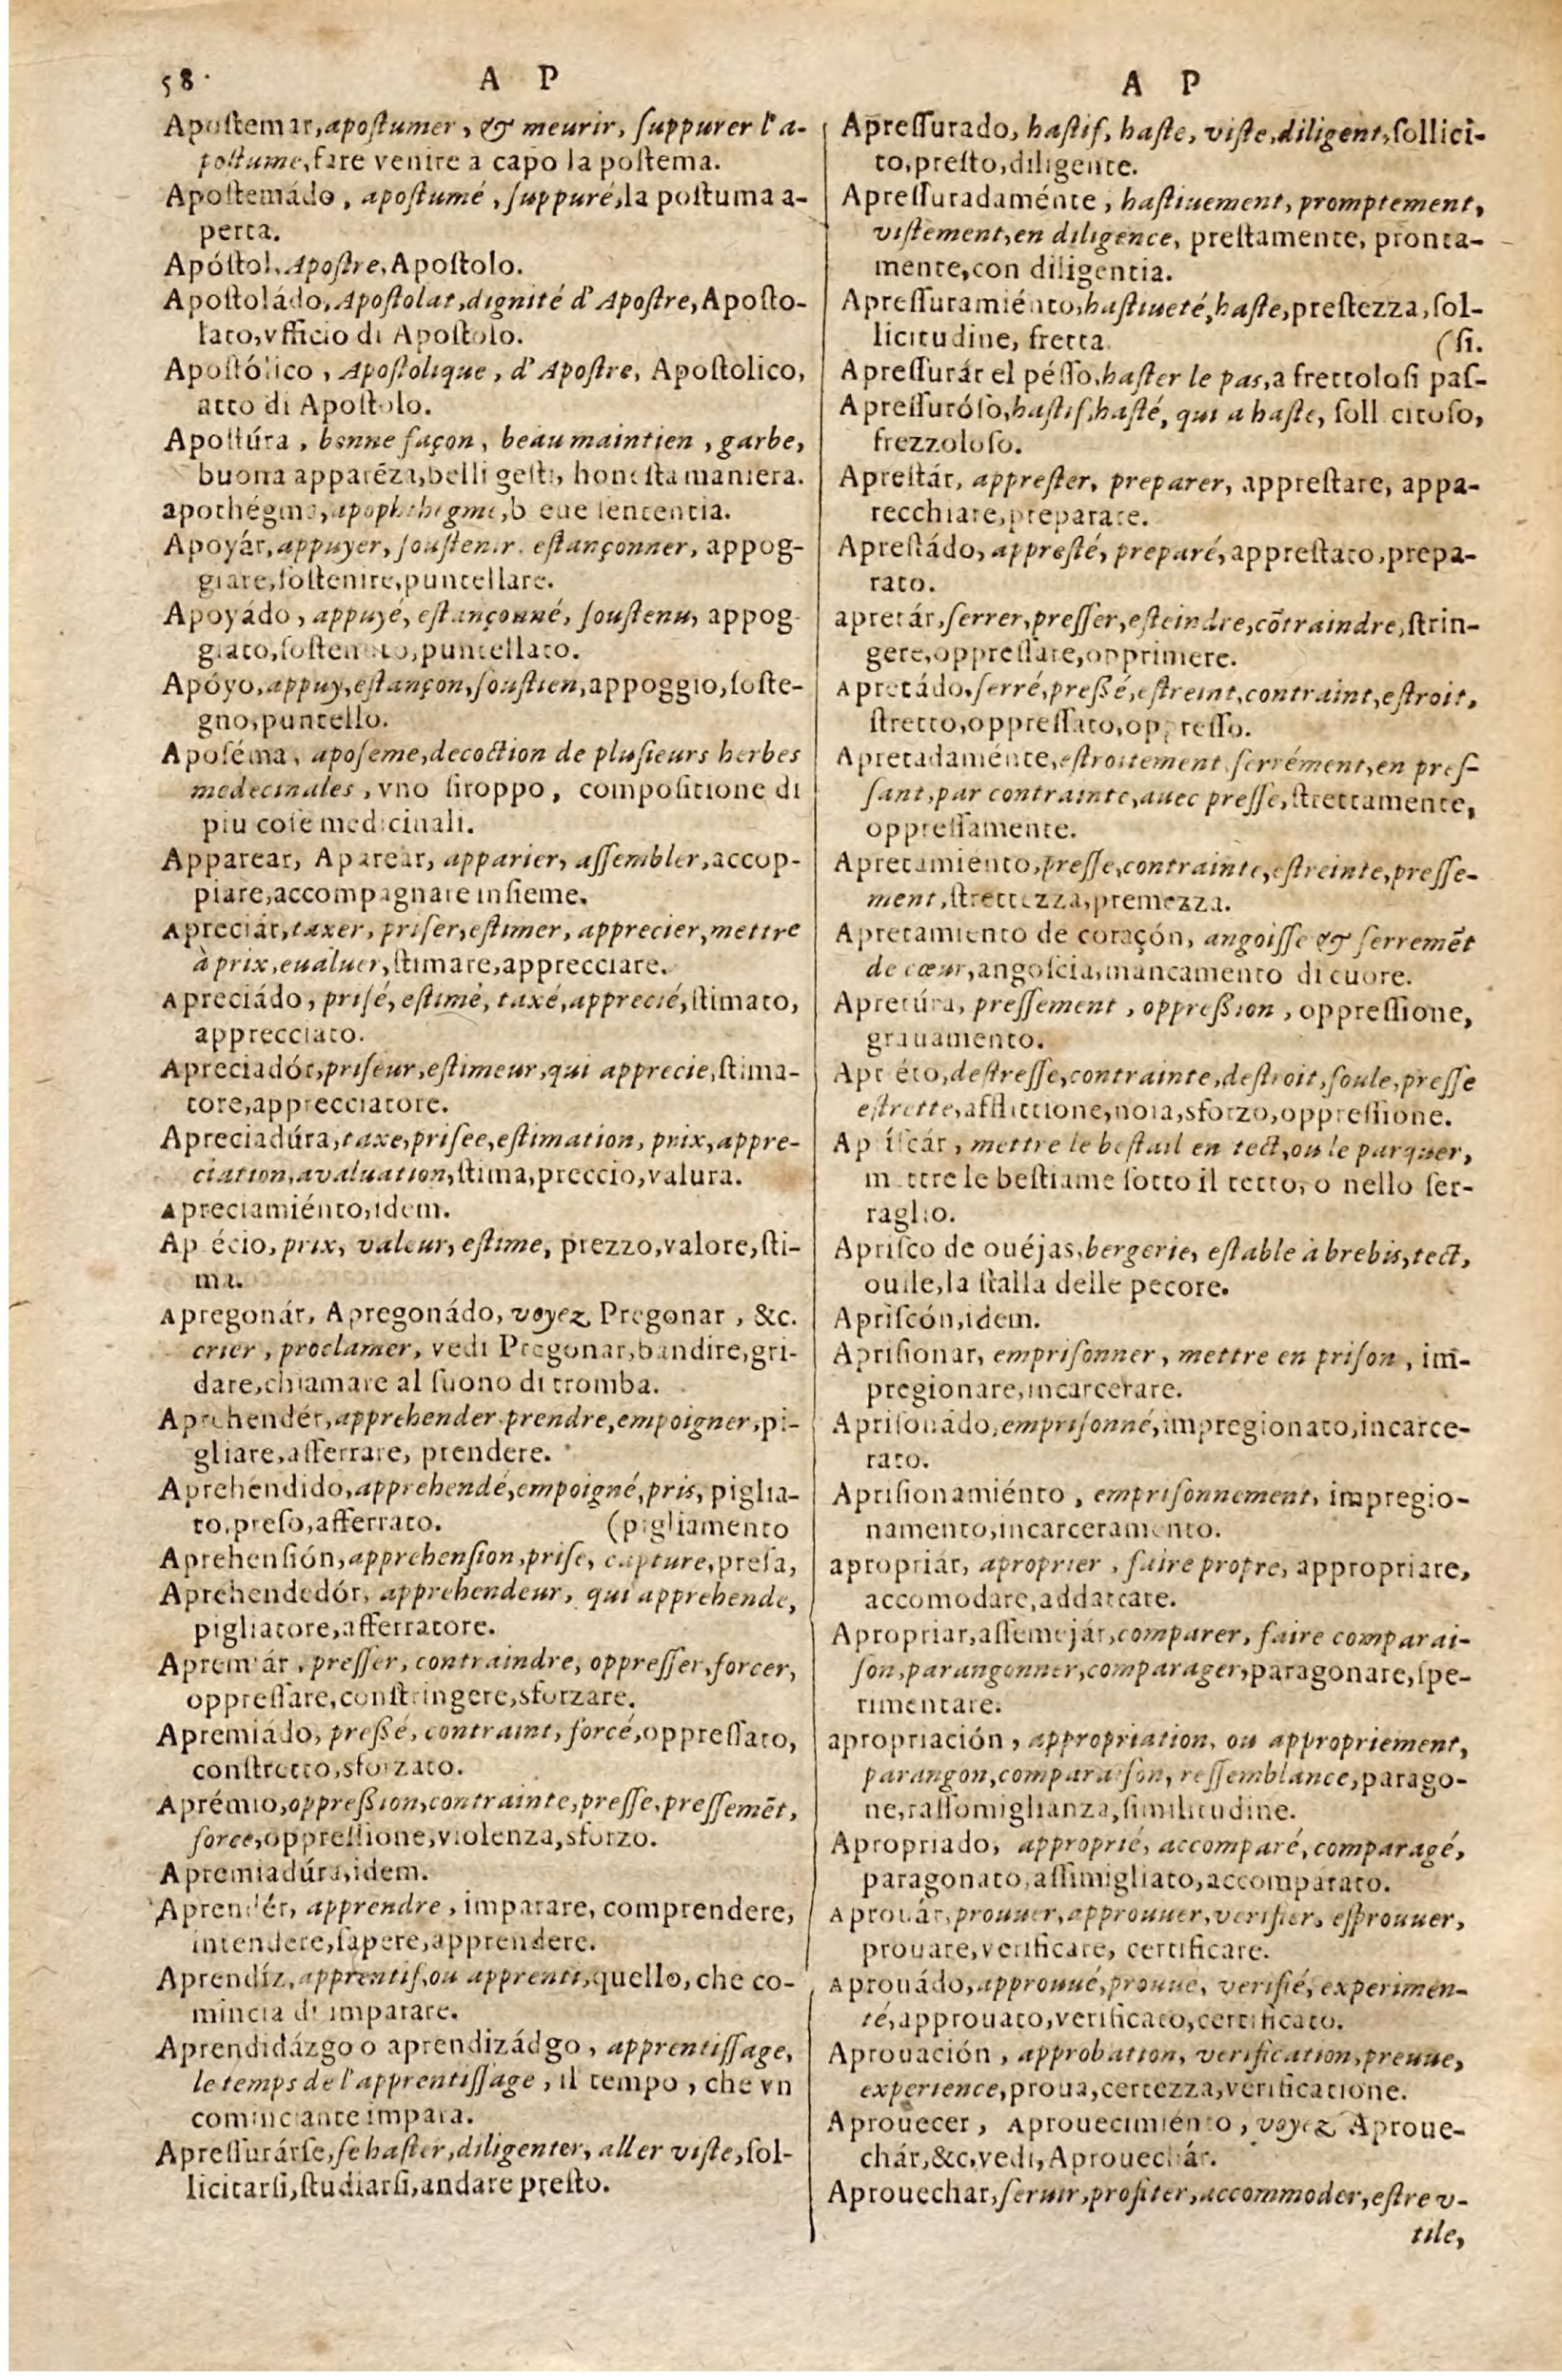 58
A P
Apostemar, apostumer, & meurir, suppurer l'a-
postume, fare venire a capo la postema.
Apostemádo, apostumé, suppuré, la postuma a-
perta.
Apóstol, Apostre, Apostolo.
Apostoládo, Apostolat, dignité d'Apostre, Aposto-
lato, vfficio di Apostolo.
Apostólico, Apostolique, d'Apostre, Apostolico,
atto di Apostolo.
Apostúra, bonne façon, beau maintien, garbe,
buona apparẽza, belli gesti, honesta maniera.
apothégma, apophthegme, b eue sententia.
Apoyár, appuyer, soustenir, estançonner, appog-
giare, sostenire, puntellare.
Apoyádo, appuyé, estançonné, soustenu, appog
giato, sostenuto, puntellato.
Apóyo, appuy, estançon, soustien, appoggio, soste-
gno, puntello.
Aposéma, aposeme, decoction de plusieurs herbes
medecinales, vno siroppo, compositione di
piu cose medicinali.
Apparear, Aparear, apparier, assembler, accop-
piare, accompagnare insieme.
Apreciár, taxer, priser, estimer, apprecier, mettre
à prix, eualuer, stimare, apprecciare.
Apreciádo, prisé, estimè, taxé, apprecié, stimato,
apprecciato.
Apreciadór, priseur, estimeur, qui apprecie, stima-
tore, apprecciatore.
Apreciadúra, taxe, prisee, estimation, prix, appre-
ciation, avaluation, stima, preccio, valura.
Apreciamiénto, idem.
Ap écio, prix, valeur, estime, prezzo, valore, sti-
ma.
Apregonár, Apregonádo, voyez Pregonar, &c.
crier, proclamer, vedi Pregonar, bandire, gri-
dare, chiamare al suono di tromba.
Aprehendér, apprehender, prendre, empoigner, pi-
gliare, afferrare, prendere.
Aprehéndido, apprehendé, empoigné, pris, piglia-
to, preso, afferrato. (pigliamento
Aprehensión, apprehension, prise, capture, presa,
Aprehendedór, apprehendeur, qui apprehende,
pigliatore, afferratore.
Apremiár, presser, contraindre, oppresser, forcer,
oppressare, constringere, sforzare.
Apremiádo, pressé, contraint, forcé, oppressato,
constretto, sforzato.
Aprémio, oppression, contrainte, presse, pressemẽt,
force, oppressione, violenza, sforzo.
Apremiadúra, idem.
Aprendér, apprendre, imparare, comprendere,
intendere, sapere, apprendere.
Aprendíz, apprentif, ou apprenti, quello, che co-
mincia di imparare.
Aprendidázgo o aprendizádgo, apprentissage,
le temps de l'apprentissage, il tempo, che vn
cominciante impara.
Apressurárse, se haster, diligenter, aller viste, sol-
licitarsi, studiarsi, andare presto.
A P
Apressurado, hastif, haste, viste, diligent, sollici-
to, presto, diligente.
Apressuradaménte, hastiuement, promptement,
vistement, en diligence, prestamente, pronta-
mente, con diligentia.
Apressuramiénto, hastiueté, haste, prestezza, sol-
licitudine, fretta. (si.
Apressurár el pésso, haster le pas, a frettolosi pas-
Apressuróso, hastif, hasté, qui a haste, soll citoso,
frezzoloso.
Aprestár, apprester, preparer, apprestare, appa-
recchiare, preparare.
Aprestádo, appresté, preparé, apprestato, prepa-
rato.
apretár, serrer, presser, esteindre, cõtraindre, strin-
gere, oppressare, opprimere.
Apretádo, serré, pressé, estreint, contraint, estroit,
stretto, oppressato, oppresso.
Apretadaménte, estroitement, serrément, en pres-
sant, par contrainte, auec presse, strettamente,
oppressamente.
Apretamiénto, presse, contrainte, estreinte, presse-
ment, strettezza, premezza.
Apretamiento de coraçón, angoisse & serremẽt
de cœur, angoscia, mancamento di cuore.
Apretúra, pressement, oppression, oppressione,
grauamento.
Apr éto, destresse, contrainte, destroit, foule, presse
estrette, afflittione, noia, sforzo, oppressione.
Ap íscár, mettre le bestail en tect, ou le parquer,
m ttere le bestiame sotto il tetto, o nello ser-
raglio.
Aprisco de ouéjas, bergerie, estable à brebis, tect,
ouile, la stalla delle pecore.
Apriscón, idem.
Aprisionar, emprisonner, mettre en prison, im-
pregionare, incarcerare.
Aprisonádo, emprisonné, impregionato, incarce-
rato.
Aprisionamiénto, emprisonnement, impregio-
namento, incarceramento.
apropriár, aproprier, faire propre, appropriare,
accomodare, addattare.
Apropriar, assemejár, comparer, faire comparai-
son, parangonner, comparager, paragonare, spe-
rimentare.
apropriación, appropriation, ou appropriement,
parangon, comparaison, ressemblance, parago-
ne, rassomiglianza, similitudine.
Apropriado, approprié, accomparé, comparagé,
paragonato, assimigliato, accomparato.
Aprouár, prouuer, approuuer, verifier, esprouuer,
prouare, verificare, certificare.
Aprouádo, approuué, prouué, verifié, experimen-
té, approuato, verificato, certificato.
Aprouación, approbation, verification, preuue,
experience, proua, certezza, verificatione.
Aprouecer, Aprouecimiénto, voyez Aproue-
chár, &c. vedi, Aprouechár.
Aprouechar, seruir, profiter, accommoder, estre v-
tile,